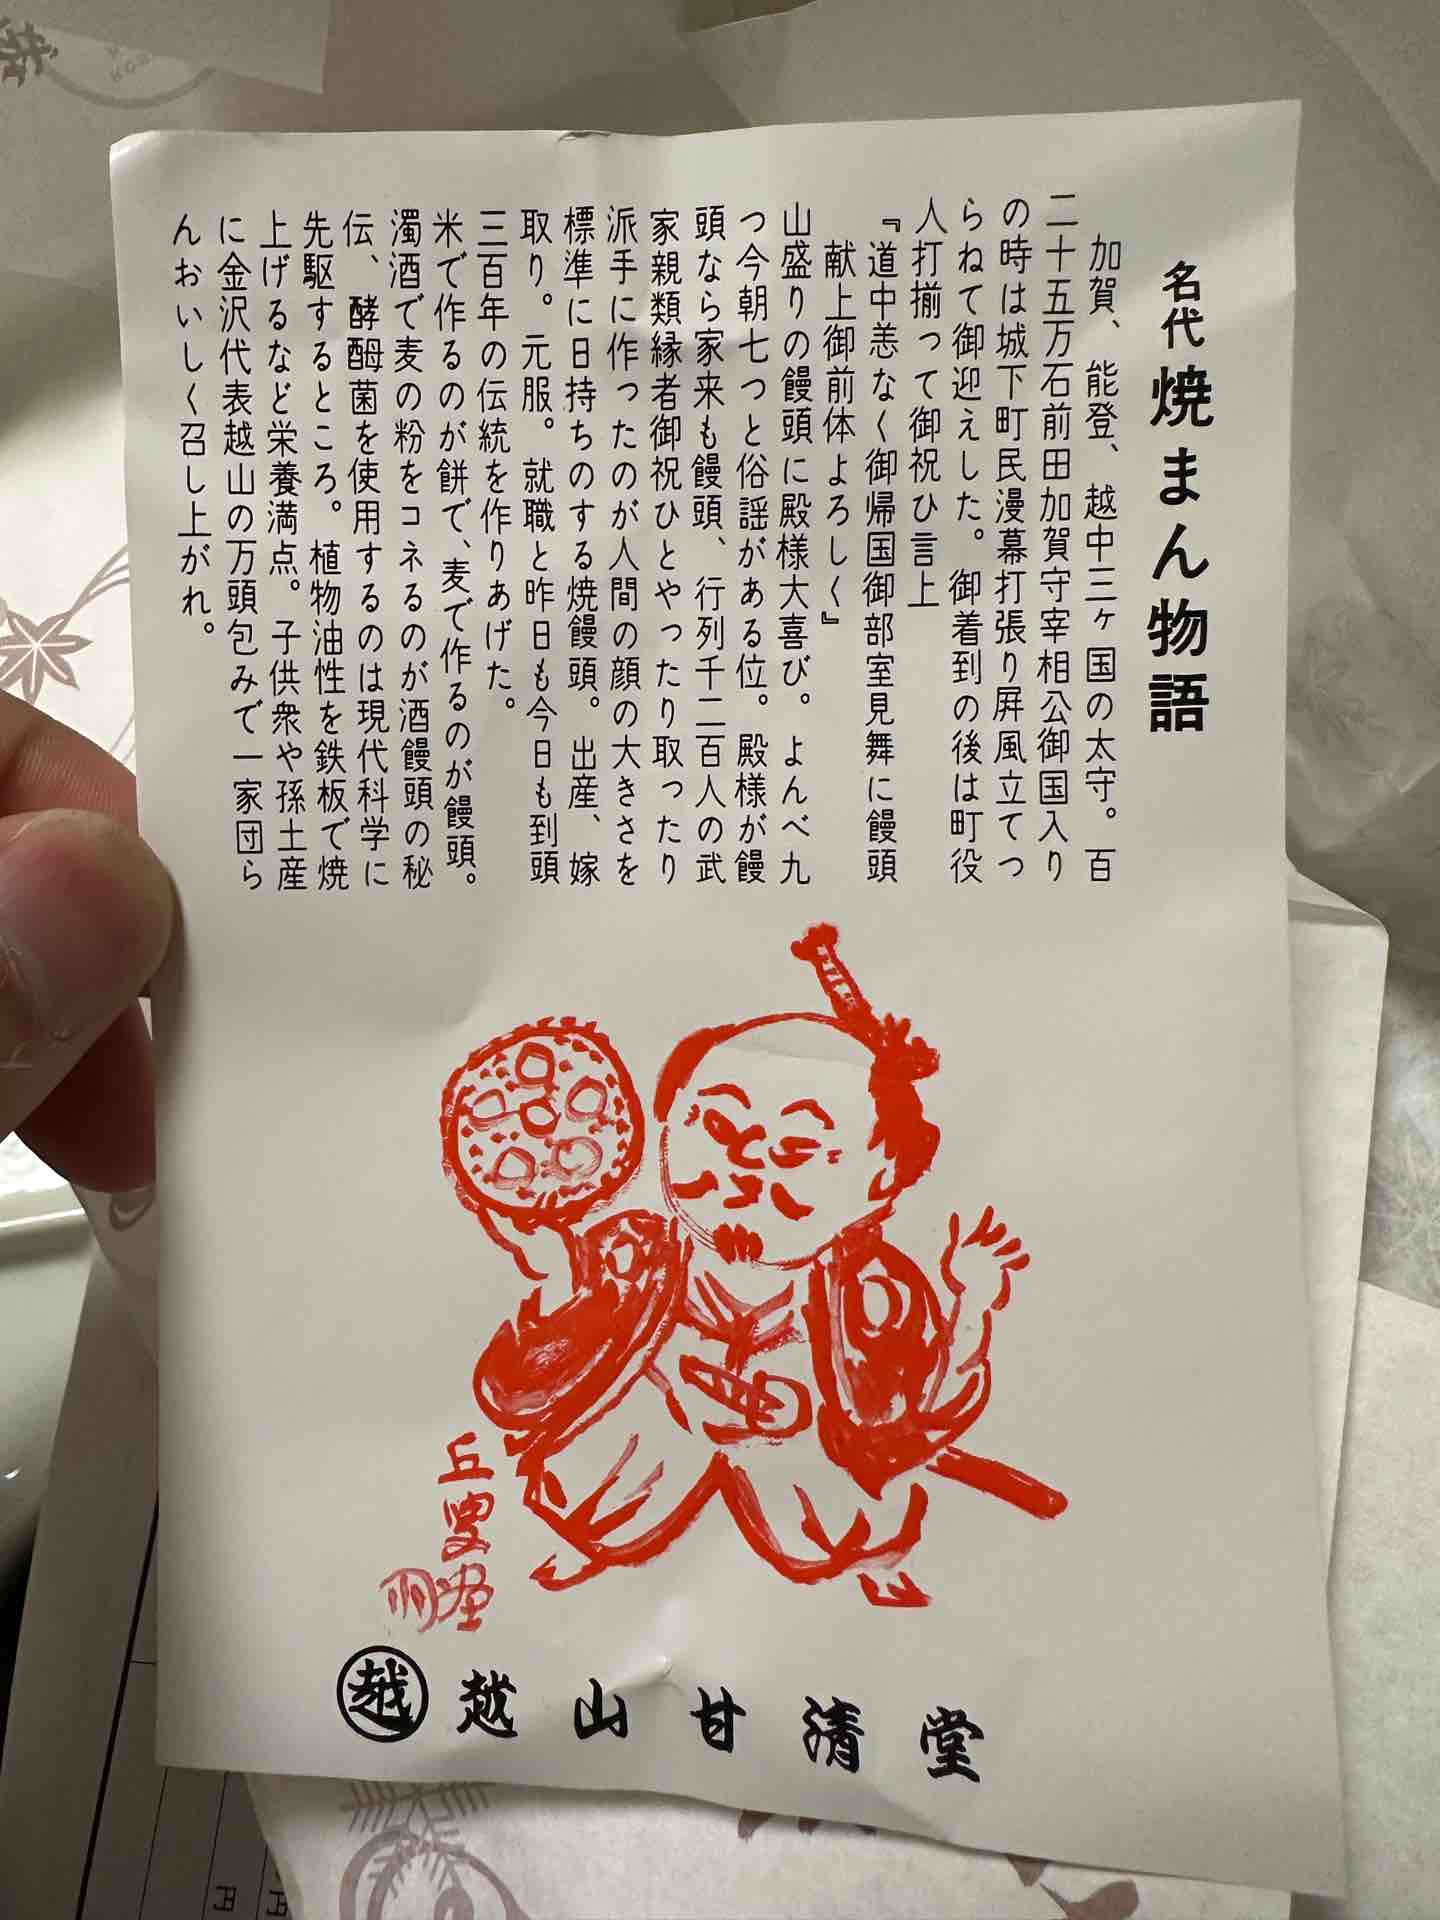 名代 焼まん物語
加賀、能登、越中三ヶ国の太守。百
二十五万石前田加賀守宰相公御国入り
の時は城下町民漫幕打張り屏風立てつ
らねて御迎えした。御着到の後は町役
人打揃って御祝ひ言上
『道中恙なく御帰国御部室見舞に饅頭
献上御前体よろしく』
山盛りの饅頭に殿様大喜び。よんべ九
つ今朝七つと俗謡がある位。殿様が饅
頭なら家来も饅頭、行列千二百人の武
家親類縁者御祝ひとやったり取ったり
派手に作ったのが人間の顔の大きさを
標準に日持ちのする焼饅頭。出産、嫁
取り。元服。就職と昨日も今日も到頭
三百年の伝統を作りあげた。
米で作るのが餅で、麦で作るのが饅頭。
濁酒で麦の粉をコネるのが酒饅頭の秘
伝、酵酶菌を使用するのは現代科学に
先駆するところ。植物油性を鉄板で焼
上げるなど栄養満点。子供衆や孫土産
に金沢代表越山の万頭包みで一家団ら
んおいしく召し上がれ。
丘叟画
越 越山甘清堂
円
円